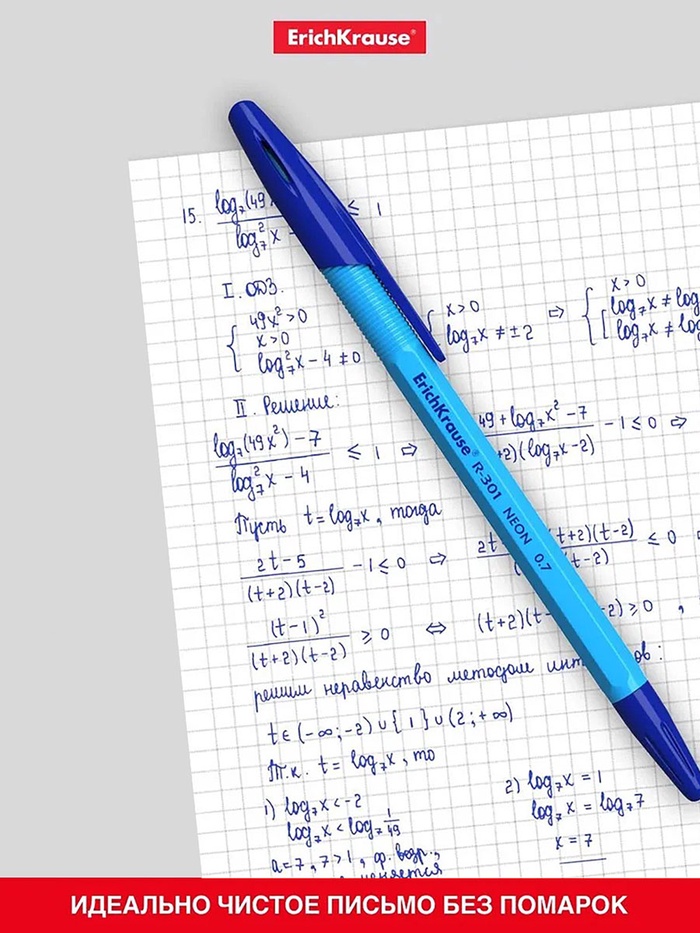 ErichKrause®
15. log₇(49x ≤ 1
log₇²x -
I. ОДЗ.
{ 49x²>0 { x>0 ⇨ { x>0
x>0 log₇x ≠ ±2 [ log₇x ≠ log
log₇²x - 4 ≠ 0 log₇x ≠ log
II. Решение:
log₇(49x²) - 7 ≤ 1 ⇨ 49 + log₇x² - 7 - 1 ≤ 0 ⇨
log₇²x - 4 +2)(log₇x-2)
Пусть t = log₇x, тогда
2t - 5 - 1 ≤ 0 ⇨ 2t (t+2)(t-2) ≤ 0
(t+2)(t-2) t-2)
(t-1)² ≥ 0 ⇔ (t+2)(t- -2) ≥ 0 ,
(t+2)(t-2)
решим неравенство методом инт ов:
t ∈ (-∞; -2) ∪ { 1 } ∪ (2; +∞)
Т.к. t = log₇x, то
1) log₇x < -2
log₇x < log₇ 1/49
a=7, 7>1, ф. возр.,
еняется
2) log₇x = 1
log₇x = log₇7
x = 7
ErichKrause® R-301 NEON 0.7
ИДЕАЛЬНО ЧИСТОЕ ПИСЬМО БЕЗ ПОМАРОК